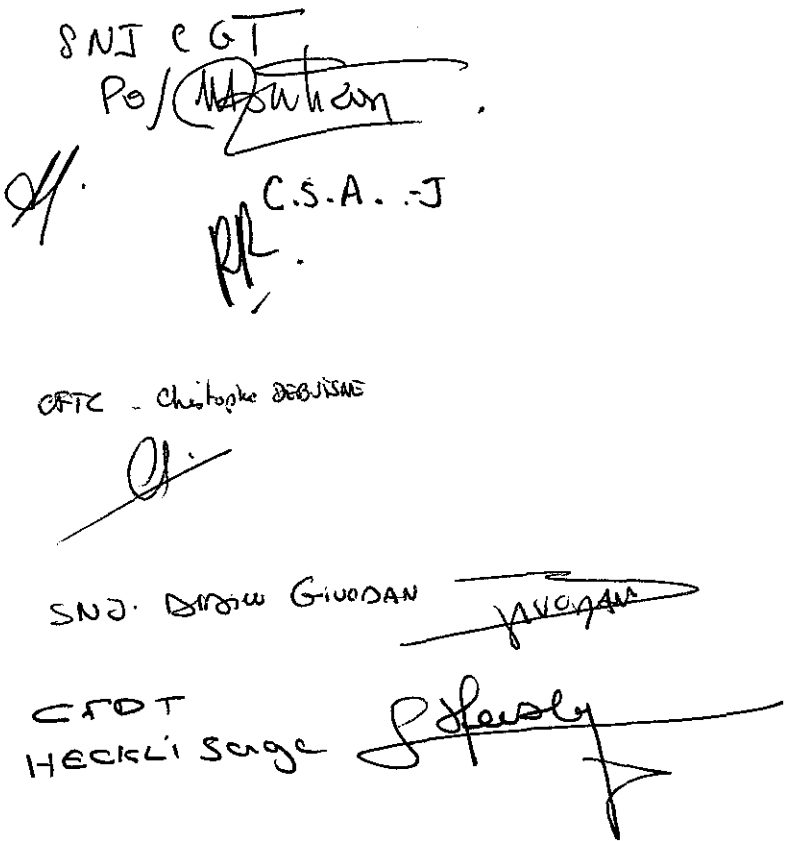 SNJ CGT
Po/
C.S.A. -J
CFTC - Christophe DEBUISNE
SNJ. GIVODAN
CFDT
HECKLI Serge